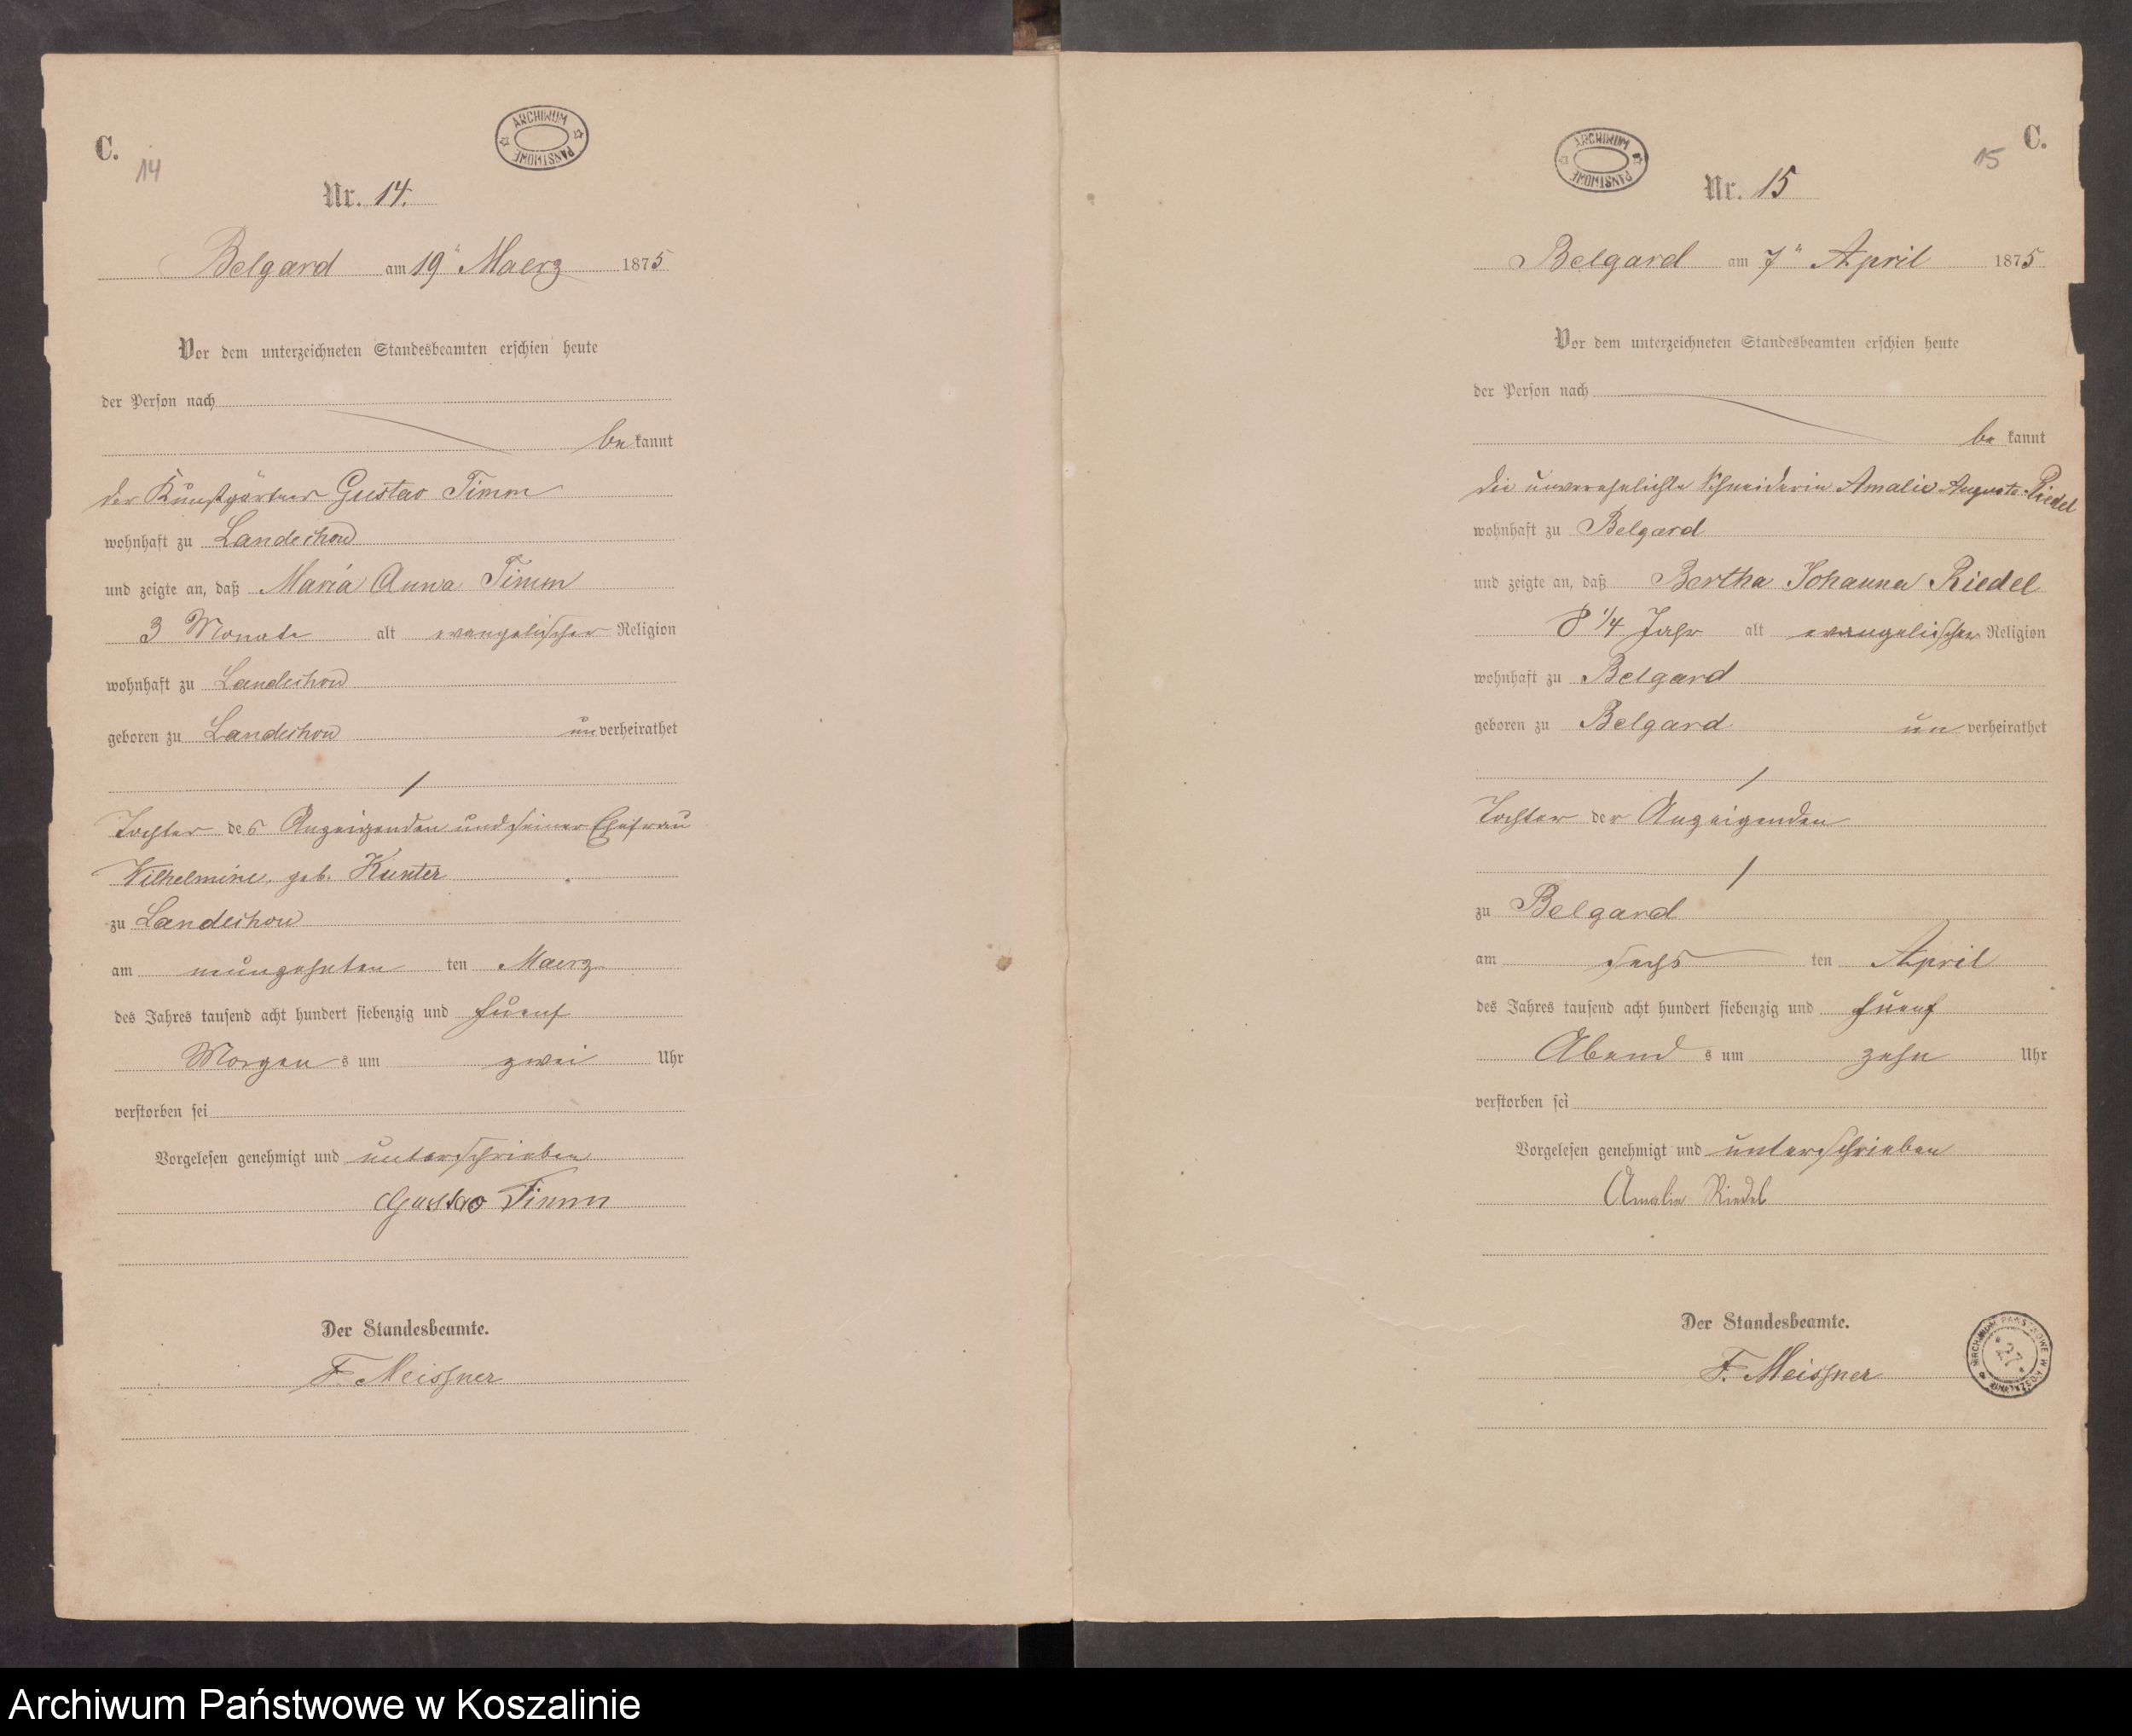 C.
14
ARCHIWUM PAŃSTWOWE
Nr. 14.
Belgard am 19" Maerz 1875
Vor dem unterzeichneten Standesbeamten erschien heute
der Person nach
be kannt
der Kunstgärtner Gustav Timm
wohnhaft zu Landechow
und zeigte an, daß Maria Anna Timm
3 Monate alt evangelischer Religion
wohnhaft zu Landechow
geboren zu Landechow un verheirathet
Tochter des Anzeigenden und seiner Ehefrau
Wilhelmine, geb. Kunter
zu Landechow
am neunzehnten ten Maerz
des Jahres tausend acht hundert siebenzig und fuenf
Morgen s um zwei Uhr
verstorben sei
Vorgelesen genehmigt und unterschrieben
Gustav Timm
Der Standesbeamte.
F. Meissner
C.
15
ARCHIWUM PAŃSTWOWE
Nr. 15
Belgard am 7" April 1875
Vor dem unterzeichneten Standesbeamten erschien heute
der Person nach
be kannt
die unverehelichte Schneiderin Amalie Auguste Riedel
wohnhaft zu Belgard
und zeigte an, daß Bertha Johanna Riedel
8 1/4 Jahr alt evangelischer Religion
wohnhaft zu Belgard
geboren zu Belgard un verheirathet
Tochter der Anzeigenden
zu Belgard
am sechs ten April
des Jahres tausend acht hundert siebenzig und fuenf
Abend s um zehn Uhr
verstorben sei
Vorgelesen genehmigt und unterschrieben
Amalie Riedel
Der Standesbeamte.
F. Meissner
ARCHIWUM PAŃSTWOWE W KOSZALINIE
27
Archiwum Państwowe w Koszalinie